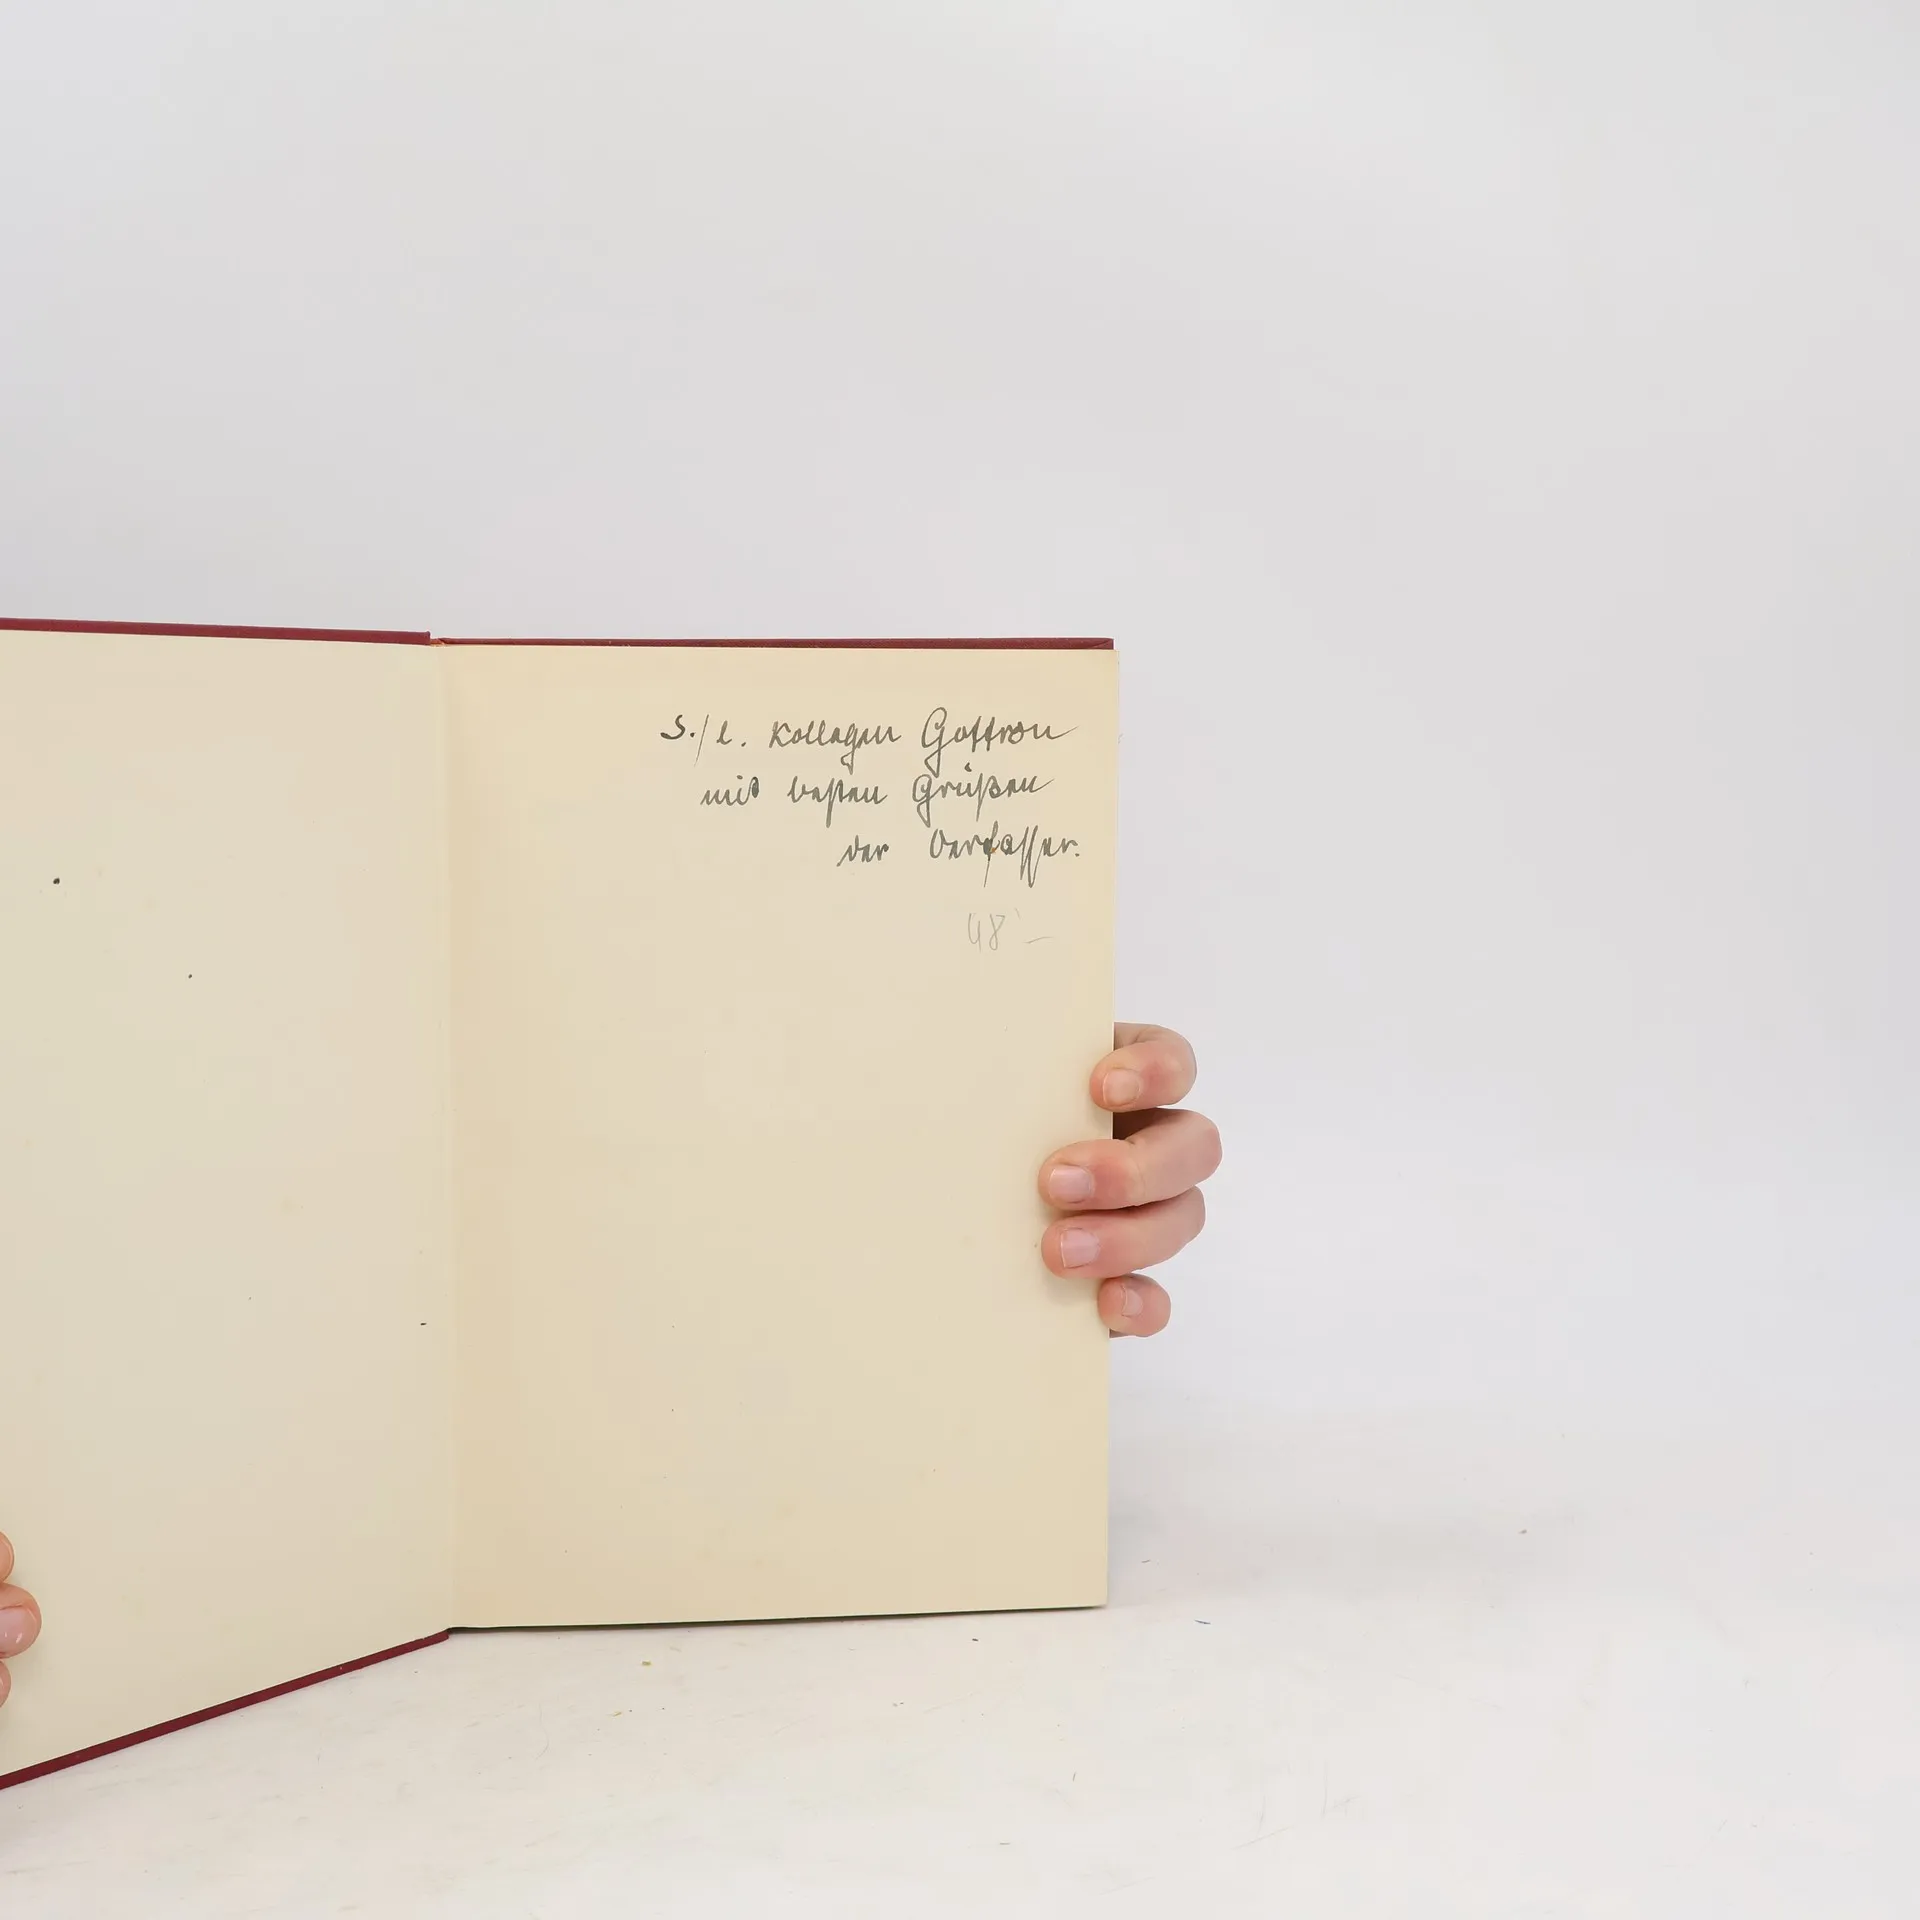 S./l. Kollegen Gaffron
mit besten Grüßen
der Verfasser.
48 –